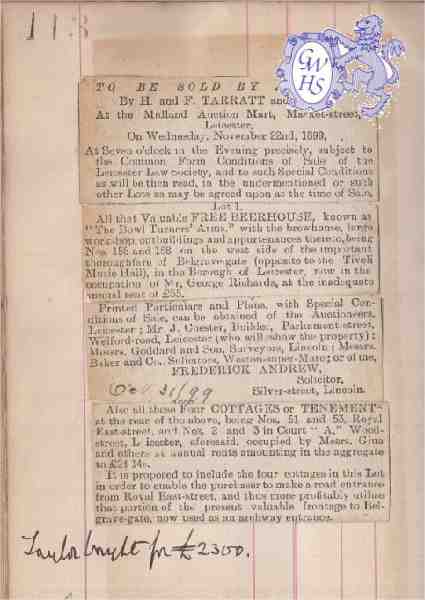 113
GWHS
TO BE SOLD BY
By H. and F. TARRATT and
At the Midland Auction Mart, Market-street,
Leicester,
On Wednesday, November 22nd, 1899,
At Seven o'clock in the Evening precisely, subject to
the Common Form Conditions of Sale of the
Leicester Law Society, and to such Special Conditions
as will be then read, in the undermentioned or such
other Lots as may be agreed upon at the time of Sale.
Lot 1.
All that Valuable FREE BEERHOUSE, known as
"The Bowl Turners' Arms," with the brewhouse, large
workshop, outbuildings and appurtenances thereto, being
Nos. 156 and 158 on the west side of the important
thoroughfare of Belgrave-gate (opposite to the Tivoli
Music Hall), in the Borough of Leicester, now in the
occupation of Mr. George Richards, at the inadequate
annual rent of £55.
Printed Particulars and Plans, with Special Con-
ditions of Sale, can be obtained of the Auctioneers,
Leicester; Mr J. Chester, Builder, Parliament-street,
Welford-road, Leicester (who will show the property);
Messrs. Goddard and Son, Surveyors, Lincoln; Messrs.
Baker and Co., Solicitors, Weston-super-Mare; or of me,
FREDERICK ANDREW,
Solicitor,
Silver-street, Lincoln.
Oct 31/99
Also all those Four COTTAGES or TENEMENT-
at the rear of the above, being Nos. 51 and 53, Royal
East-street, and Nos. 2 and 3 in Court "A," Wood-
street, Leicester, aforesaid, occupied by Messrs. Ginn
and others at annual rents amounting in the aggregate
to £24 14s.
It is proposed to include the four cottages in this Lot
in order to enable the purchaser to make a road entrance
from Royal East-street, and thus more profitably utilise
that portion of the present valuable frontage to Bel-
grave-gate, now used as an archway entrance.
Taylor bought for £2300.